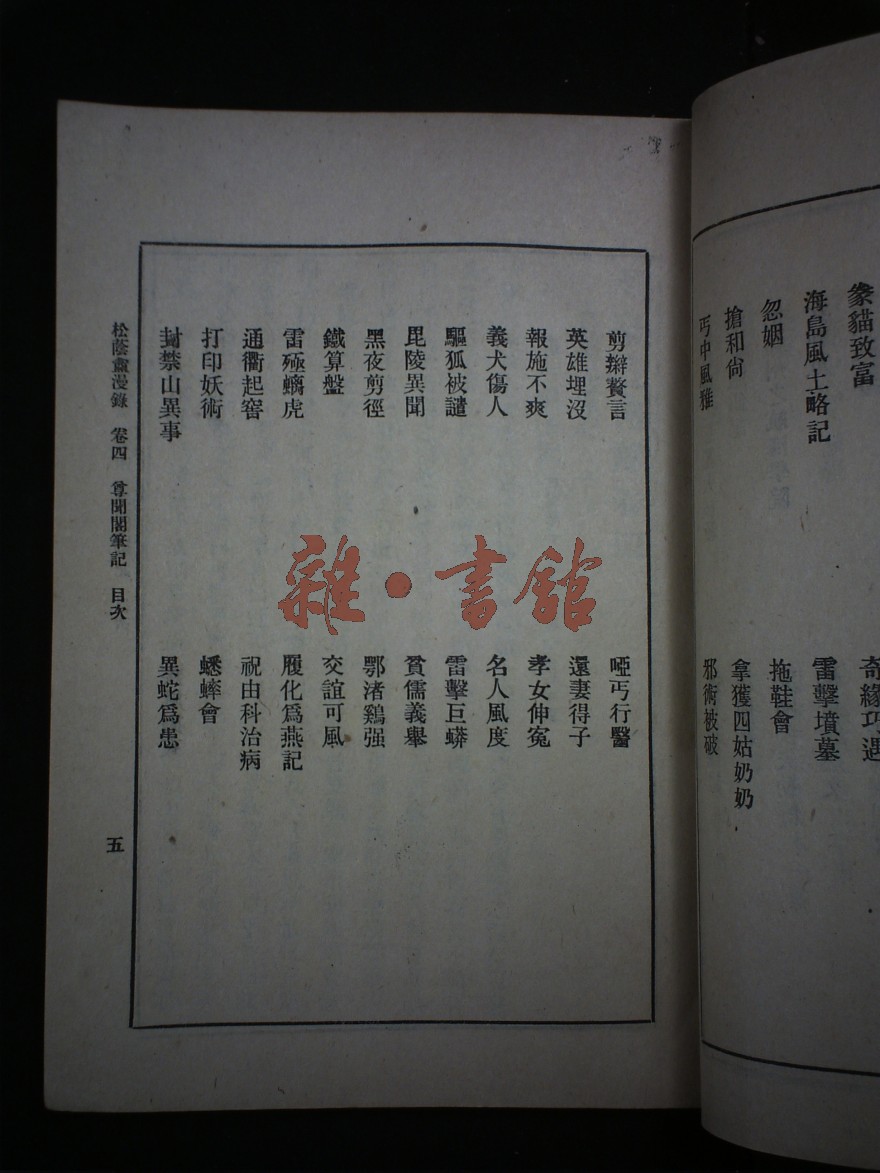 象貓致富
奇緣巧遇
海島風土略記
雷擊墳墓
忽姻
拖鞋會
搶和尙
拿獲四姑奶奶
丐中風雅
邪術被破
剪辮贅言
啞丐行醫
英雄埋沒
還妻得子
報施不爽
孝女伸冤
義犬傷人
名人風度
驅狐被譴
雷擊巨蟒
毘陵異聞
貧儒義舉
黑夜剪徑
鄂渚鷄强
鐵算盤
交誼可風
雷殛蝻虎
履化爲燕記
通衢起窖
祝由科治病
打印妖術
蟋蟀會
封禁山異事
異蛇爲患
松蔭盦漫錄 卷四 尊聞閣筆記 目次
五
雜·書館